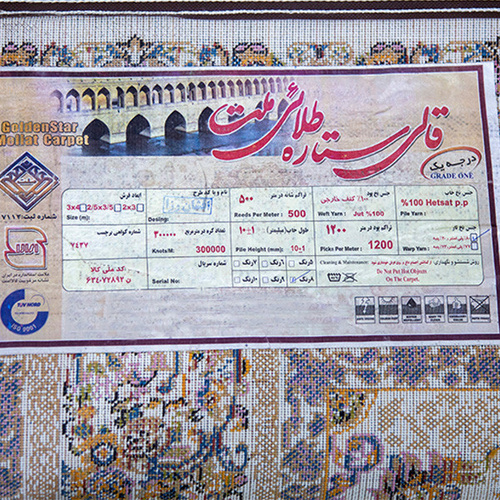 قالی ستاره طلائی ملت
GoldenStar
Mellat Carpet
درجه یک
GRADE ONE
ابعاد فرش
3x4 2/5x3/5 2x3
Size (m):
نام و یا کد طرح
Desing:
تراکم شانه در متر
۵۰۰
Reeds Per Meter: 500
جنس نخ پود
۱۰۰٪ کنف خارجی
Weft Yarn: Jut %100
جنس نخ خاب
%100 Hetsat p.p
Pile Yarn:
شماره ثبت: ۷۱۱۲
شماره گواهی برچسب
۷۴۳۷
تعداد گره در مترمربع
۳۰۰۰۰۰
Knots/M: 300000
طول خاب (میلیمتر)
۱۰±۱
Pile Height (mm): 10±1
تراکم پود در متر
۱۲۰۰
Picks Per Meter: 1200
جنس نخ تار
Warp Yarn:
کد ملی کالا
شماره سریال
Serial No:
۷رنگ
۶رنگ
۸رنگ
Cleaning & Maintenance:
روش شستشو و نگهداری:
Do Not Put Hot Objects
On The Carpet.
TUV NORD
ISO 9001